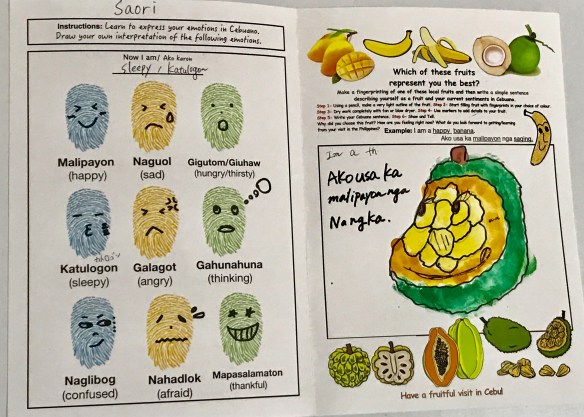 Saori
Instructions: Learn to express your emotions in Cebuano.
Draw your own interpretation of the following emotions.
Now I am/ Ako karon
sleepy / Katulogon
Malipayon
(happy)
Naguol
(sad)
Gigutom/Giuhaw
(hungry/thirsty)
Katulogon
(sleepy)
Galagot
(angry)
Gahunahuna
(thinking)
Naglibog
(confused)
Nahadlok
(afraid)
Mapasalamaton
(thankful)
Which of these fruits
represent you the best?
Make a fingerprinting of one of these local fruits and then write a simple sentence
describing yourself as a fruit and your current sentiments in Cebuano.
Step 1: Using a pencil, make a very light outline of the fruit. Step 2: Start filling fruit with fingerprints in your choice of colour.
Step 3: Dry work completely with fan or blow dryer. Step 4: Use markers to add details to your fruit.
Step 5: Write your Cebuano sentence. Step 6: Show and Tell.
Why did you choose this fruit? How are you feeling right now? What do you look forward to getting/learning
from your visit to the Philippines?
Example: I am a happy banana.
Ako usa ka malipayon nga saging.
Ako usa ka
malipayon nga
Nangka.
Have a fruitful visit in Cebu!